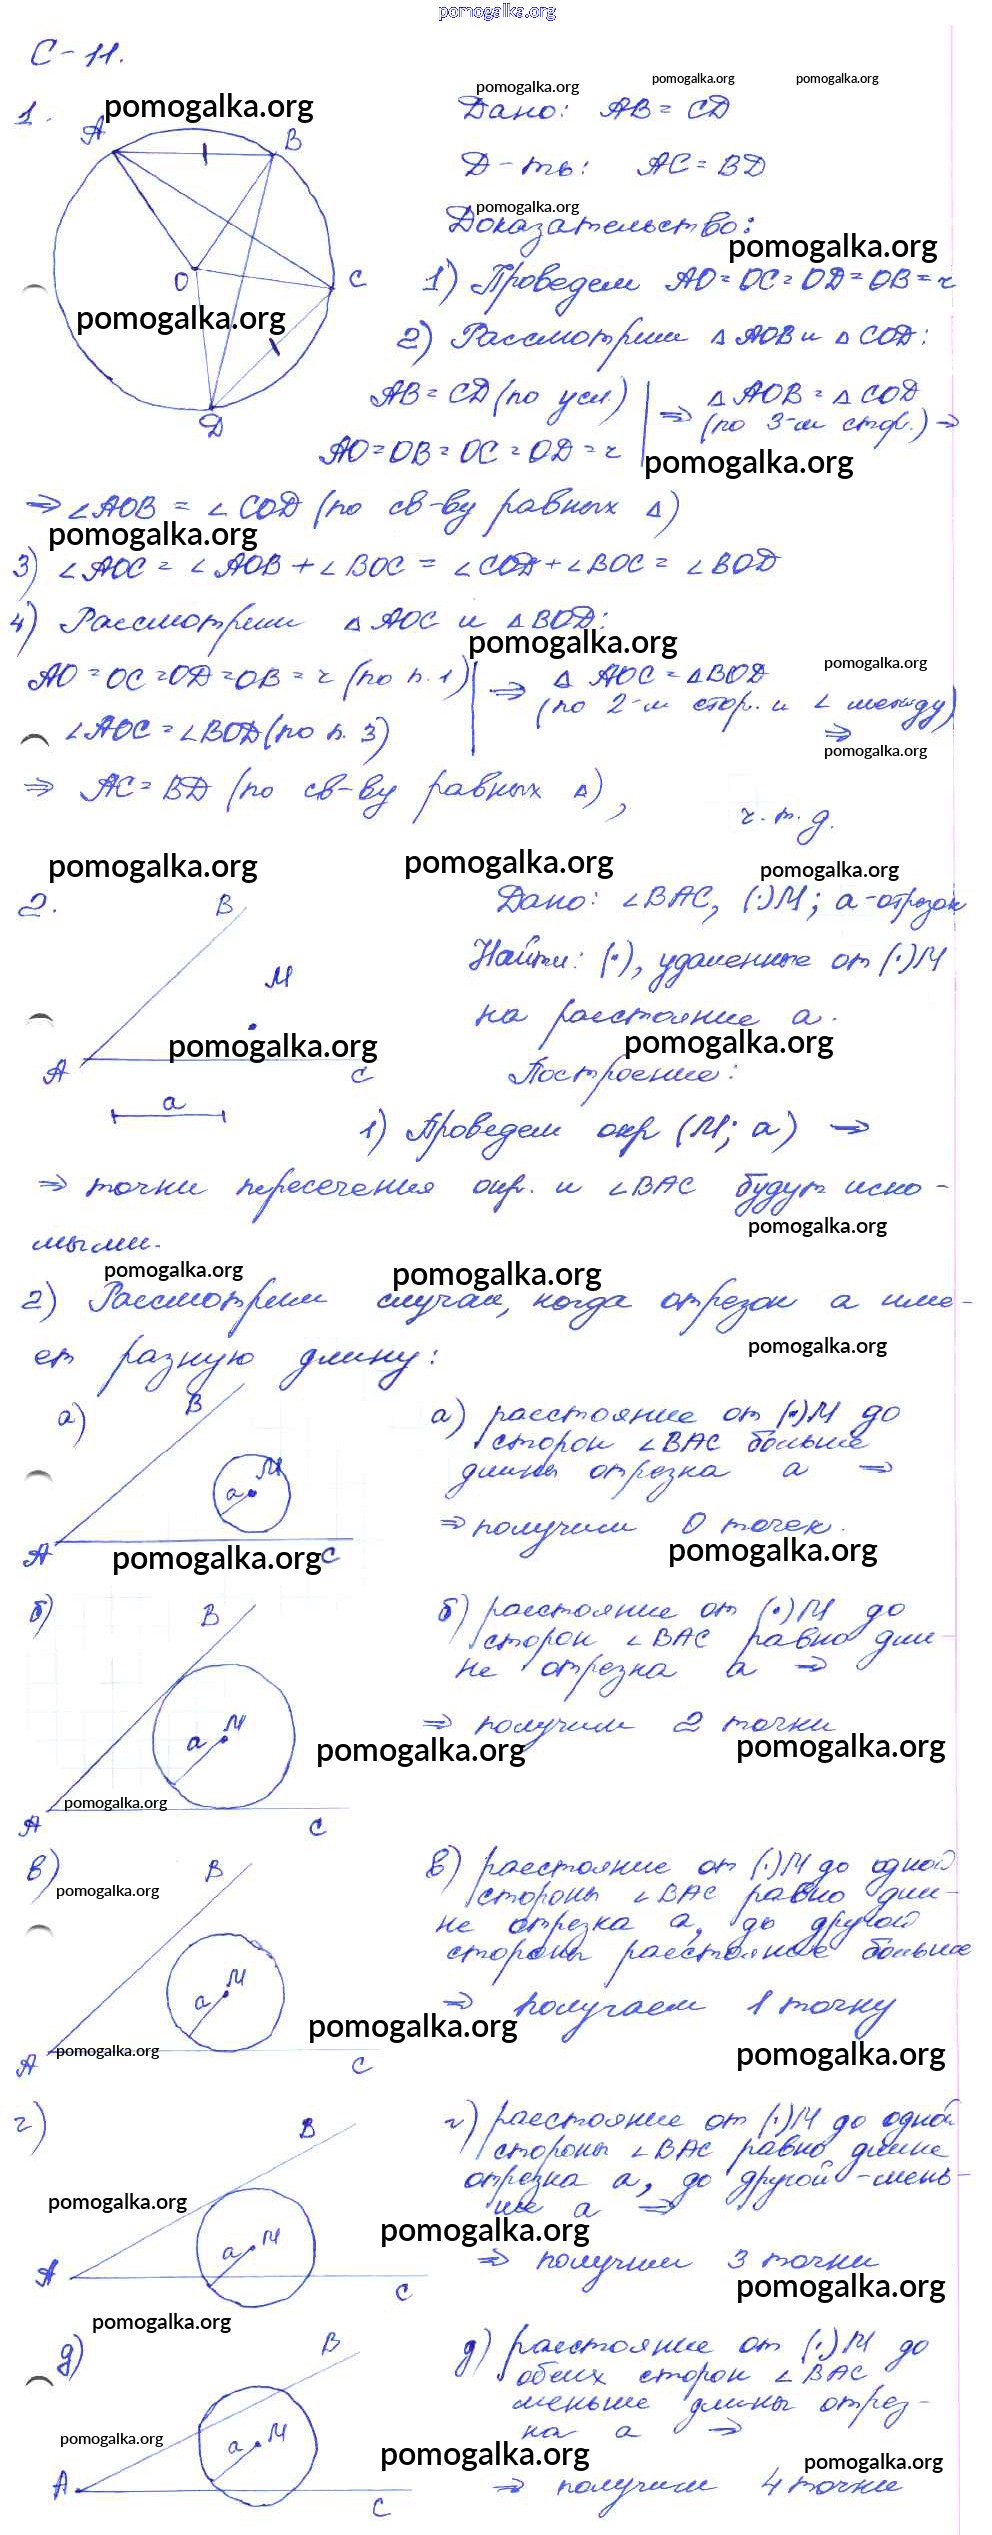 pomogalka.org
С-11.
1.
pomogalka.org
pomogalka.org
pomogalka.org
pomogalka.org
A
B
Дано: AB = CD
Д-ть: AC = BD
pomogalka.org
Доказательство:
pomogalka.org
O
C
1) Проведем AO = OC = OD = OB = r
pomogalka.org
2) Рассмотрим △ AOB и △ COD:
D
AB = CD (по усл.)
AO = OB = OC = OD = r
⇒ △ AOB = △ COD
(по 3-м стор.) ⇒
pomogalka.org
⇒ ∠AOB = ∠COD (по св-ву равных △)
pomogalka.org
3) ∠AOC = ∠AOB + ∠BOC = ∠COD + ∠BOC = ∠BOD
4) Рассмотрим △ AOC и △ BOD:
pomogalka.org
pomogalka.org
AO = OC = OD = OB = r (по п. 1)
∠AOC = ∠BOD (по п. 3)
⇒ △ AOC = △ BOD
(по 2-м стор. и ∠ между)
⇒
pomogalka.org
⇒ AC = BD (по св-ву равных △),
ч. т. д.
pomogalka.org
pomogalka.org
pomogalka.org
2.
B
M
A
C
a
pomogalka.org
Дано: ∠BAC, (·)M; a-отрезок
Найти: (·), удаленные от (·)M
на расстояние a.
pomogalka.org
Построение:
1) Проведем окр (M; a) ⇒
⇒ точки пересечения окр. и ∠BAC будут иско-
мыми.
pomogalka.org
pomogalka.org
pomogalka.org
2) Рассмотрим случаи, когда отрезок a име-
ет разную длину:
pomogalka.org
а)
B
M
a
A
C
pomogalka.org
а) расстояние от (·)M до
сторон ∠BAC больше
длины отрезка a ⇒
⇒ получим 0 точек.
pomogalka.org
б)
B
M
a
A
C
pomogalka.org
б) расстояние от (·)M до
сторон ∠BAC равно дли-
не отрезка a ⇒
⇒ получим 2 точки
pomogalka.org
pomogalka.org
в)
B
M
a
A
C
pomogalka.org
pomogalka.org
в) расстояние от (·)M до одной
стороны ∠BAC равно дли-
не отрезка a, до другой
стороны расстояние больше
⇒ получаем 1 точку
pomogalka.org
pomogalka.org
г)
B
M
a
A
C
pomogalka.org
г) расстояние от (·)M до одной
стороны ∠BAC равно длине
отрезка a, до другой - мень-
ше a ⇒
pomogalka.org
⇒ получим 3 точки
pomogalka.org
pomogalka.org
д)
B
M
a
A
C
pomogalka.org
д) расстояние от (·)M до
обеих сторон ∠BAC
меньше длины отрез-
ка a ⇒
pomogalka.org
pomogalka.org
⇒ получим 4 точки